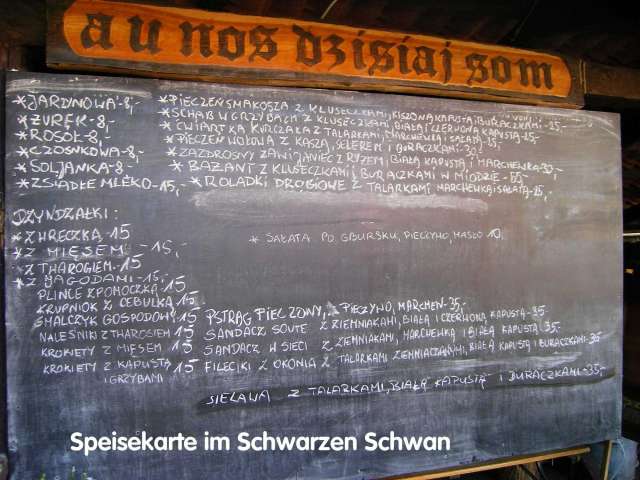 a u nos dzisiaj som
*JARZYNOWA-8,-
*ŻUREK-8,-
*ROSÓŁ-8,-
*CZOSNKOWA-8,-
*SOLJANKA-8,-
*ZSIADŁE MLEKO-15,-
*PIECZEŃ SMAKOSZA Z KLUSECZKAMI, KISZONĄ KAPUSTĄ I BURACZKAMI-
*SCHAB W GRZYBACH Z KLUSECZKAMI, BIAŁĄ I CZERWONĄ KAPUSTĄ-25,-
*ĆWIARTKA KURCZAKA Z TALARKAMI, MARCHEWKĄ I SAŁATĄ-
*PIECZEŃ WOŁOWA Z KASZĄ, SELEREM I BURACZKAMI-
*ZAZDROSNY ZAWIJANIEC Z RYŻEM, BIAŁĄ KAPUSTĄ I MARCHEWKĄ-
*BAŻANT Z KLUSECZKAMI, BURACZKAMI W MIODZIE-
*ROLADKI DROBIOWE Z TALARKAMI MARCHEWKĄ I SAŁATĄ-25,-
DZYNDZAŁKI:
*Z HRECZKĄ-15
*Z MIĘSEM-15,-
*Z THAROGIEM-15
*Z JAGODAMI-15,-
PLINCE Z POMOCZKĄ-15
KRUPNIOK Z CEBULKĄ 15
SMALCZYK GOSPODOWY 15
NALEŚNIKI Z THAROGIEM 15
KROKIETY Z MIĘSEM 15
KROKIETY Z KAPUSTĄ 15
I GRZYBAMI
*SAŁATA PO GBURSKU, PIECZYWO, MASŁO 10,
PSTRĄG PIECZONY, PIECZYWO, MARCHEW-35,-
SANDACZ SOUTE Z ZIEMNIAKAMI, BIAŁĄ I CZERWONĄ KAPUSTĄ-35,-
SANDACZ W SIECI Z ZIEMNIAKAMI, MARCHEWKĄ I BIAŁĄ KAPUSTĄ 35,-
FILECIKI Z OKONIA Z TALARKAMI ZIEMNIACZANYMI, BIAŁĄ KAPUSTĄ I BURACZKAMI-35,-
SIELAWA Z TALARKAMI, BIAŁĄ KAPUSTĄ I BURACZKAMI-35,-
Speisekarte im Schwarzen Schwan